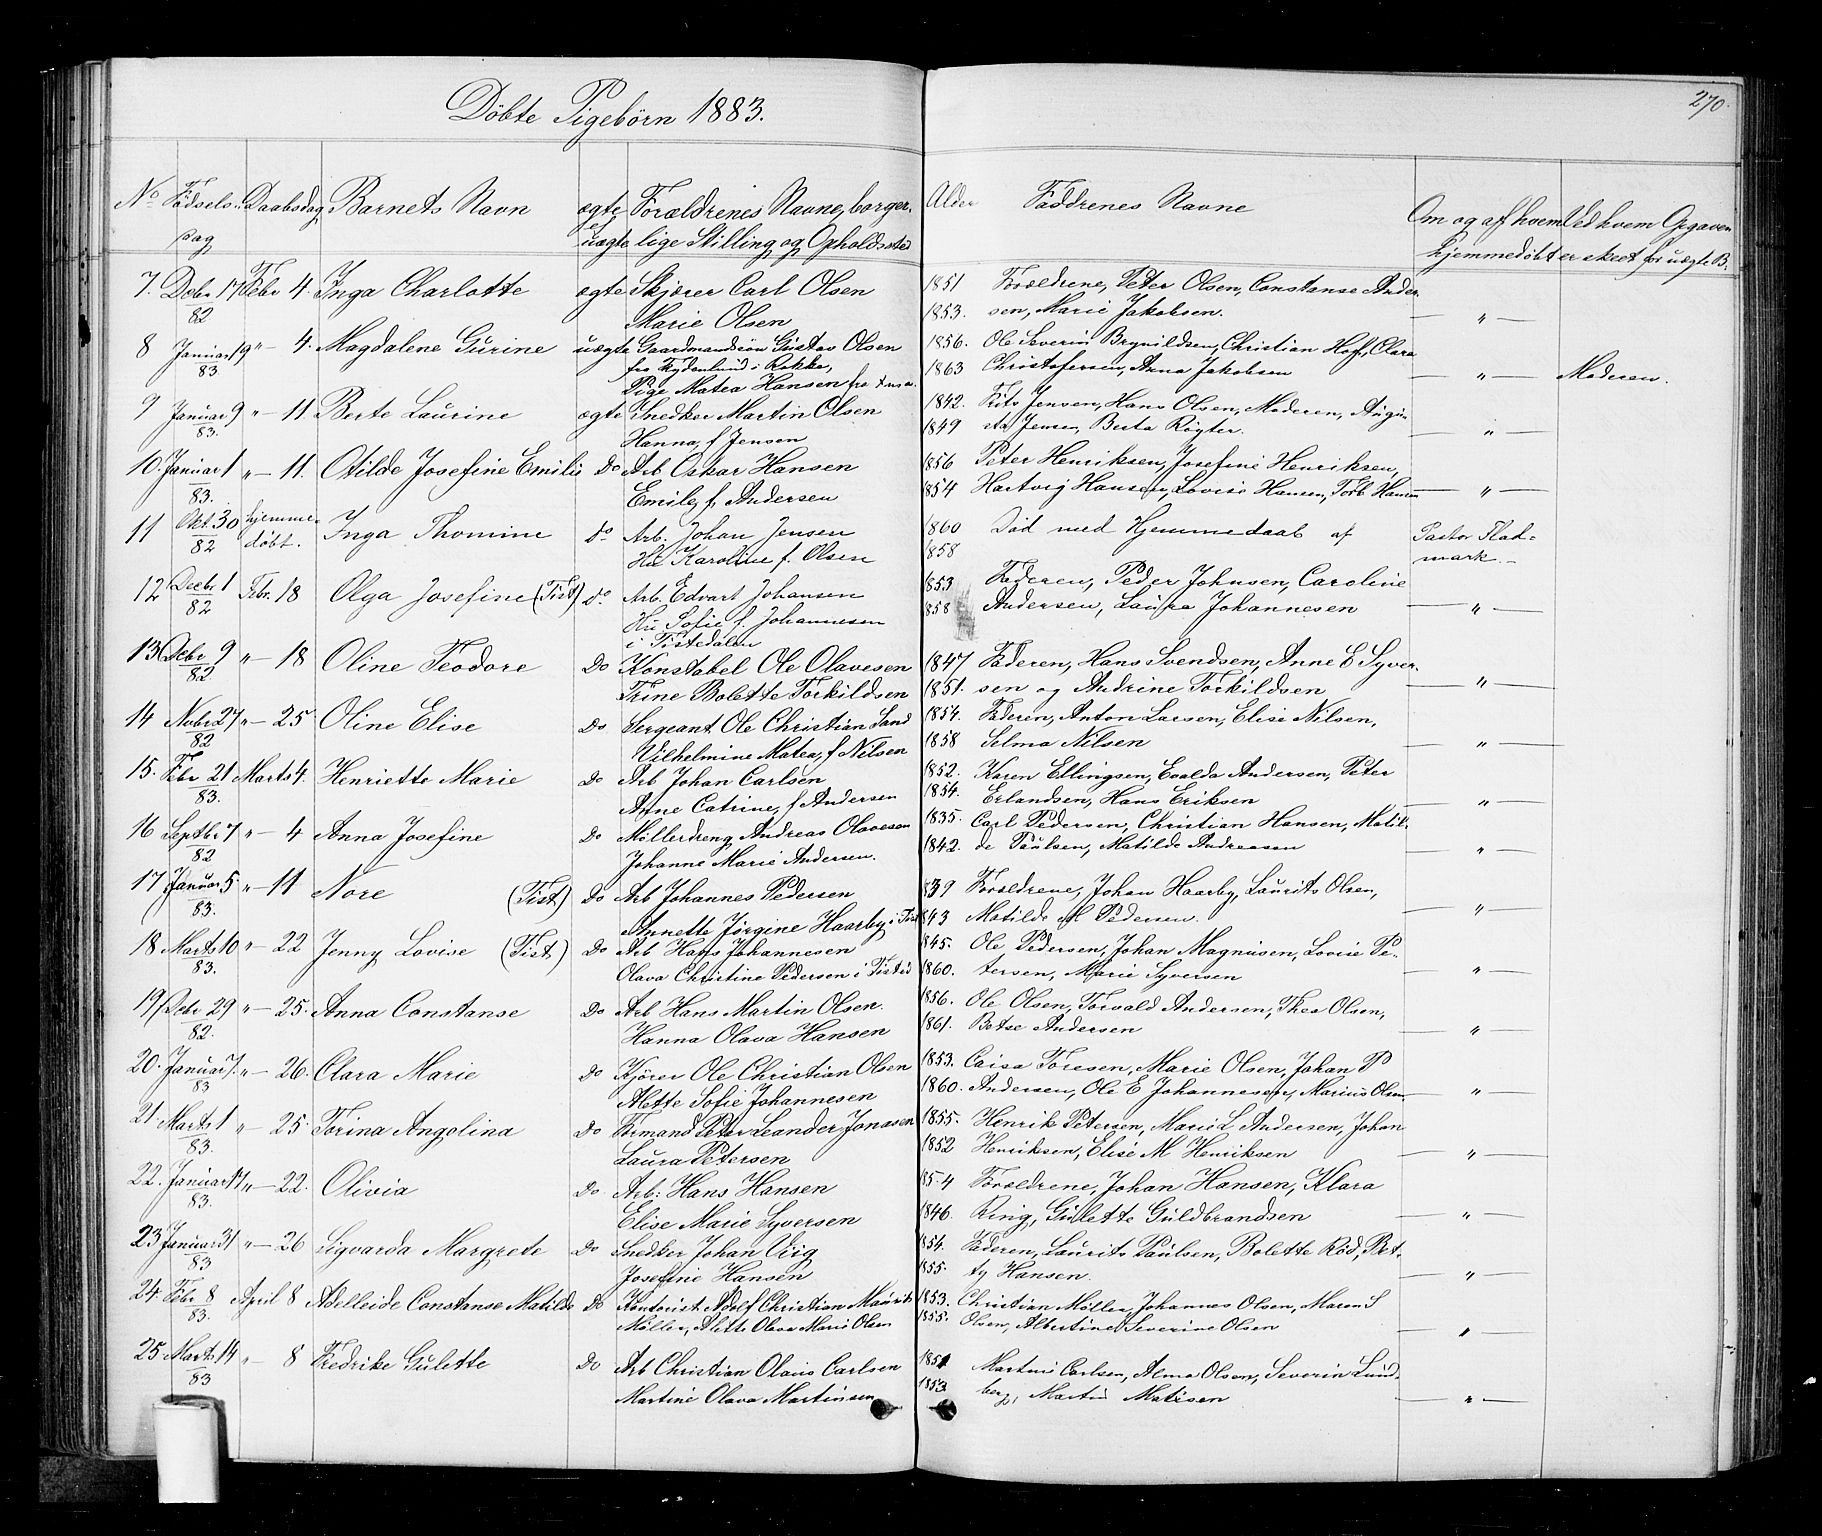 Döbte Pigebörn 1883.
270.
No Födsels Dag Daabsdag Barnets Navn ægte el uægte Forældrenes Navne, borgerlige Stilling og Opholdssted Alder Faddrenes Navne Om og af hvem hjemmedöbt Ved hvem Opgaven er skeet for uægte B.
7. Decbr 17 82 Febr 4. Inga Charlotte ægte Skjörer Carl Olsen 1851 Forældrene, Peter Olsen, Constanse Ander-
Marie Olsen 1853. sen, Marie Jakobsen. — " —
8 Januar 19 83 " — 4. Magdalene Gurine uægte Gaardmandssön Gustav Olsen 1856. Ole Severin Brynildsen, Christian Hoff, Clara
fra Frydenlund i Rokke,
Pige Matea Hansen fra 1863 Christofersen, Anna Jakobsen — " — Moderen.
9 Januar 9 83. " — 11. Berte Laurine ægte Snedker Martin Olsen 1842. Frits Jensen, Hans Olsen, Moderen, Augu-
Hanna, f Jensen 1849 sta Jensen, Berta Röyter. — " —
10. Januar 1 83. " — 11. Otilde Josefine Emilie Do Arb Oskar Hansen 1856 Peter Henriksen, Josefine Henriksen,
Emilie, f. Andersen 1854 Hartvig Hansen, Lovise Hansen, Torb Hansen — " —
11 Okt. 30 82 hjemme-döbt. Inga Thomine Do Arb. Johan Jensen 1860 Död med Hjemmedaab af Pastor Flad-
Hu Karoline f. Olsen 1858 mark. —
12 Decbr 1 82 Febr. 18 Olga Josefine (Tist) Do Arb. Edvart Johansen 1853 Faderen, Peder Johnsen, Caroline
Hu Sofie f. Johannesen 1858 Andersen, Laura Johannesen — " —
i Tistedalen
13 Decbr 9 82 " — 18 Oline Teodore Do Konstabel Ole Olavesen 1847 Faderen, Hans Svendsen, Anne E Syver-
Trine Bolette Torkildsen 1851. sen og Andrine Torkildsen — " —
14 Novbr 27 82 " — 25 Oline Elise Do Sergeant Ole Christian Sand 1854. Faderen, Anton Larsen, Elise Nilsen,
Vilhelmine Matea, f Nilsen 1858 Selma Nilsen — " —
15. Febr 21 83. Marts 4. Henriette Marie Do Arb Johan Carlsen 1852. Karen Ellingsen, Evalda Andersen, Peter
Anne Catrine, f Andersen 1854. Erlandsen, Hans Eriksen — " —
16 Septbr 7 82 " — 4 Anna Josefine Do Möllerdreng Andreas Olavesen 1835. Carl Pedersen, Christian Hansen, Matil-
Johanne Marie Andersen. 1842. de Paulsen, Matilde Andreasen — " —
17 Januar 5 83. " — 11 Nore (Tist) Do Arb Johannes Pedersen 1839 Forældrene, Johan Haarby, Laurits Olsen,
Annette Jörgine Haarby i Tist 1843 Matilde M Pedersen. — " —
18 Marts 10 83. " — 22 Jenny Lovise (Tist) Do Arb Hans Johannesen 1845. Ole Pedersen, Johan Magnusen, Lovise Pe-
Olava Christine Pedersen i Tisted 1860. tersen, Marie Syversen "
19 Decbr 29 82. " — 25. Anna Constanse Do Arb Hans Martin Olsen. 1856. Ole Olsen, Torvald Andersen, Thea Olsen,
Hanna Olava Hansen 1861. Betse Andersen — " —
20. Januar 7. 83 " — 26. Clara Marie Do Kjörer Ole Christian Olsen 1853. Caisa Toresen, Marie Olsen, Johan P
Alette Sofie Johannesen 1860. Andersen, Ole E Johannesen, Marius Olsen — " —
21 Marts 1 83. " — 25. Torina Angelina Do Formand Peter Leander Jonasen 1855. Henrik Petersen, Marie L Andersen, Johan
Laura Petersen 1852 Henriksen, Elise M Henriksen — " —
22. Januar 17 83. " — 22. Olivia Do. Arb: Hans Hansen 1854 Forældrene, Johan Hansen, Klara
Elise Marie Syversen 1846. Ring, Gulette Guldbrandsen — " —
23 Januar 31 83 " — 26 Sigvarda Margrete Do Snedker Johan Urig 1854. Faderen, Laurits Paulsen, Bolette Röd, Bet-
Josefine Hansen 1855. ty Hansen. — " —
24. Febr 8 83. April 8 Adelleide Constanse Matilde Do Kontorist Adolf Christian Maurits 1853. Christian Möller, Johannes Olsen, Maren S
Möller, Alette Olava Marie Olsen 1855. Olsen, Albertine Severine Olsen — " —
25 Marts 14 83 " — 8 Fredrike Gulette Do Arb Christian Olaus Carlsen 1851 Martini Carlsen, Alma Olsen, Severin Lund-
Martine Olava Martinsen 1853 berg, Martin Matisen — " —